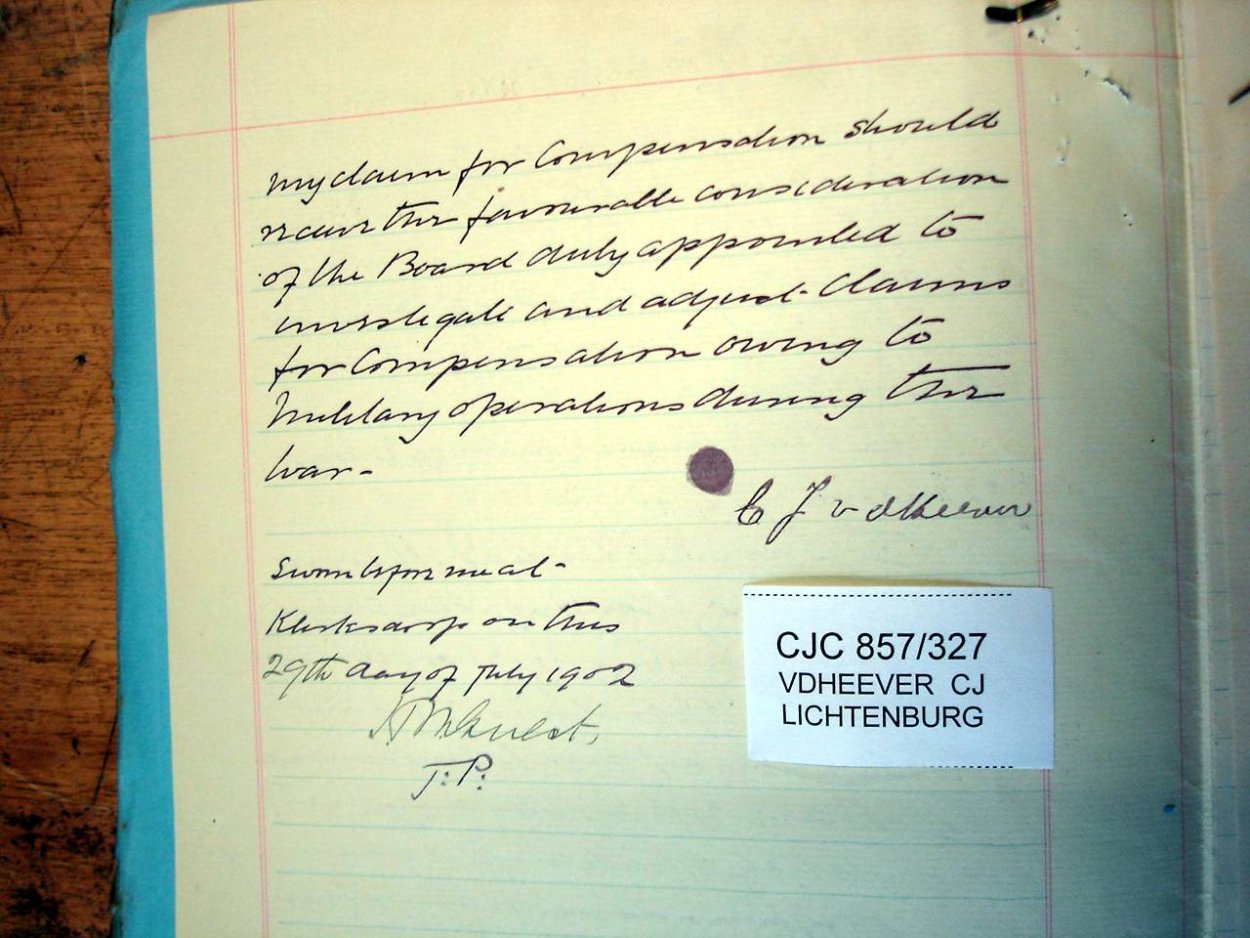 my claim for Compensation should
receive the favourable consideration
of the Board duly appointed to
investigate and adjust claims
for Compensation owing to
Military operations during the
war -
C J v d Heever
Sworn before me at -
Klerksdorp on this
29th day of July 1902
J.P.
CJC 857/327
VDHEEVER CJ
LICHTENBURG